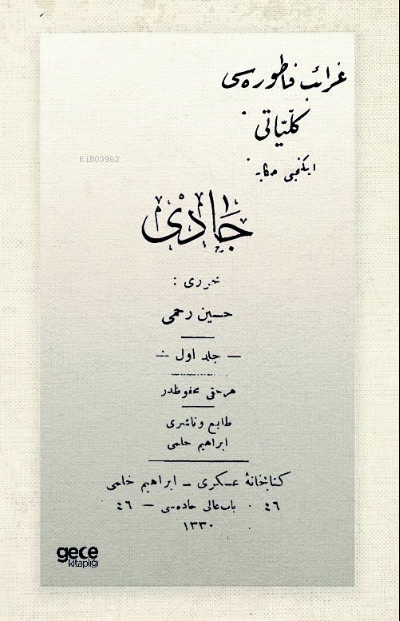 غرائب فاطوره‌سی
كلّیّاتی
ایكنجی حكایه
جادی
محرری :
حسین رحمی
— جلد اول —
هر حقی محفوظدر
طابع و ناشری
ابراهیم حلمی
كتابخانهٔ عسكری – ابراهیم حلمی
٤٦ · باب عالی جاده‌سی — ٤٦
١٣٣٠
KiB03962
gece
kitaplığı